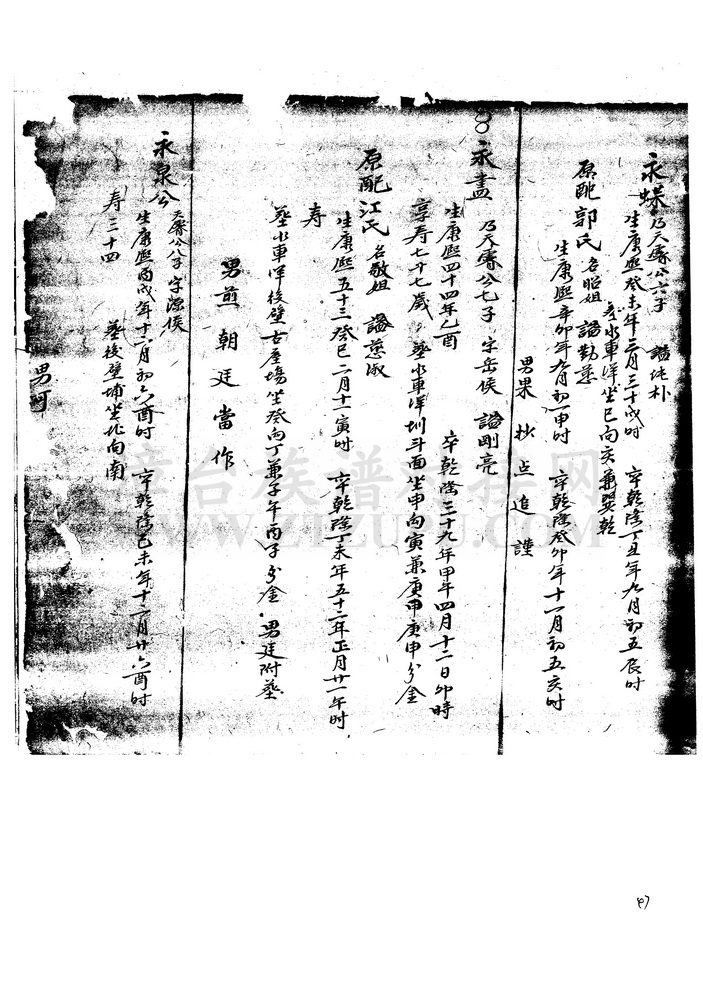 永蝶 乃天壽公六子 諡純朴
生康熙癸未年三月三十戌时 卒乾隆丁丑年九月初五辰时
葬水車洋坐巳向亥兼巽乾
原配郭氏 名昭姐 諡勤慈
生康熙辛卯年九月初一申时 卒乾隆癸卯年十一月初五亥时
男果 抄 点 追 謹
永盡 乃天壽公七子 字岳侯 諡剛亮
生康熙四十四年乙酉 卒乾隆三十九年甲年四月十二日卯時
享寿七十七歲 葬水車洋圳斗面坐申向寅兼庚甲庚申分金
原配江氏 名敬姐 諡慈淑
生康熙五十三癸巳二月十一寅时 卒乾隆丁未年五十二年正月廿一午时
寿
葬水車洋後壁古厝場坐癸向丁兼子午丙子分金 男廷附葬
男 煎 朝 廷 當 作
永泉公 天壽公八子 字源侯
生康熙丙戌年十二月初六酉时 卒乾隆己未年十二月廿六酉时
寿三十四 葬後壁埔坐北向南
男
章台族谱对接网
WWW.ZTZUPU.COM
97